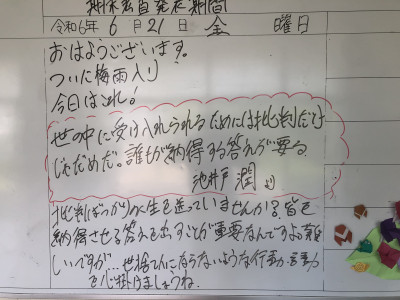 期末素点発表期間
令和6年 6月 21日 金 曜日
おはようございます。
ついに梅雨入り
今日はこれ!
世の中に受け入れられるためには批判だけ
じゃだめだ。誰もが納得する答えが要る
池井戸 潤 より
批判ばっかりの人生を送っていませんか?皆を
納得させる答えを出すことが重要なんですよね。難
しいですが…世捨て人にならないような行動・言動
を心掛けましょうね。